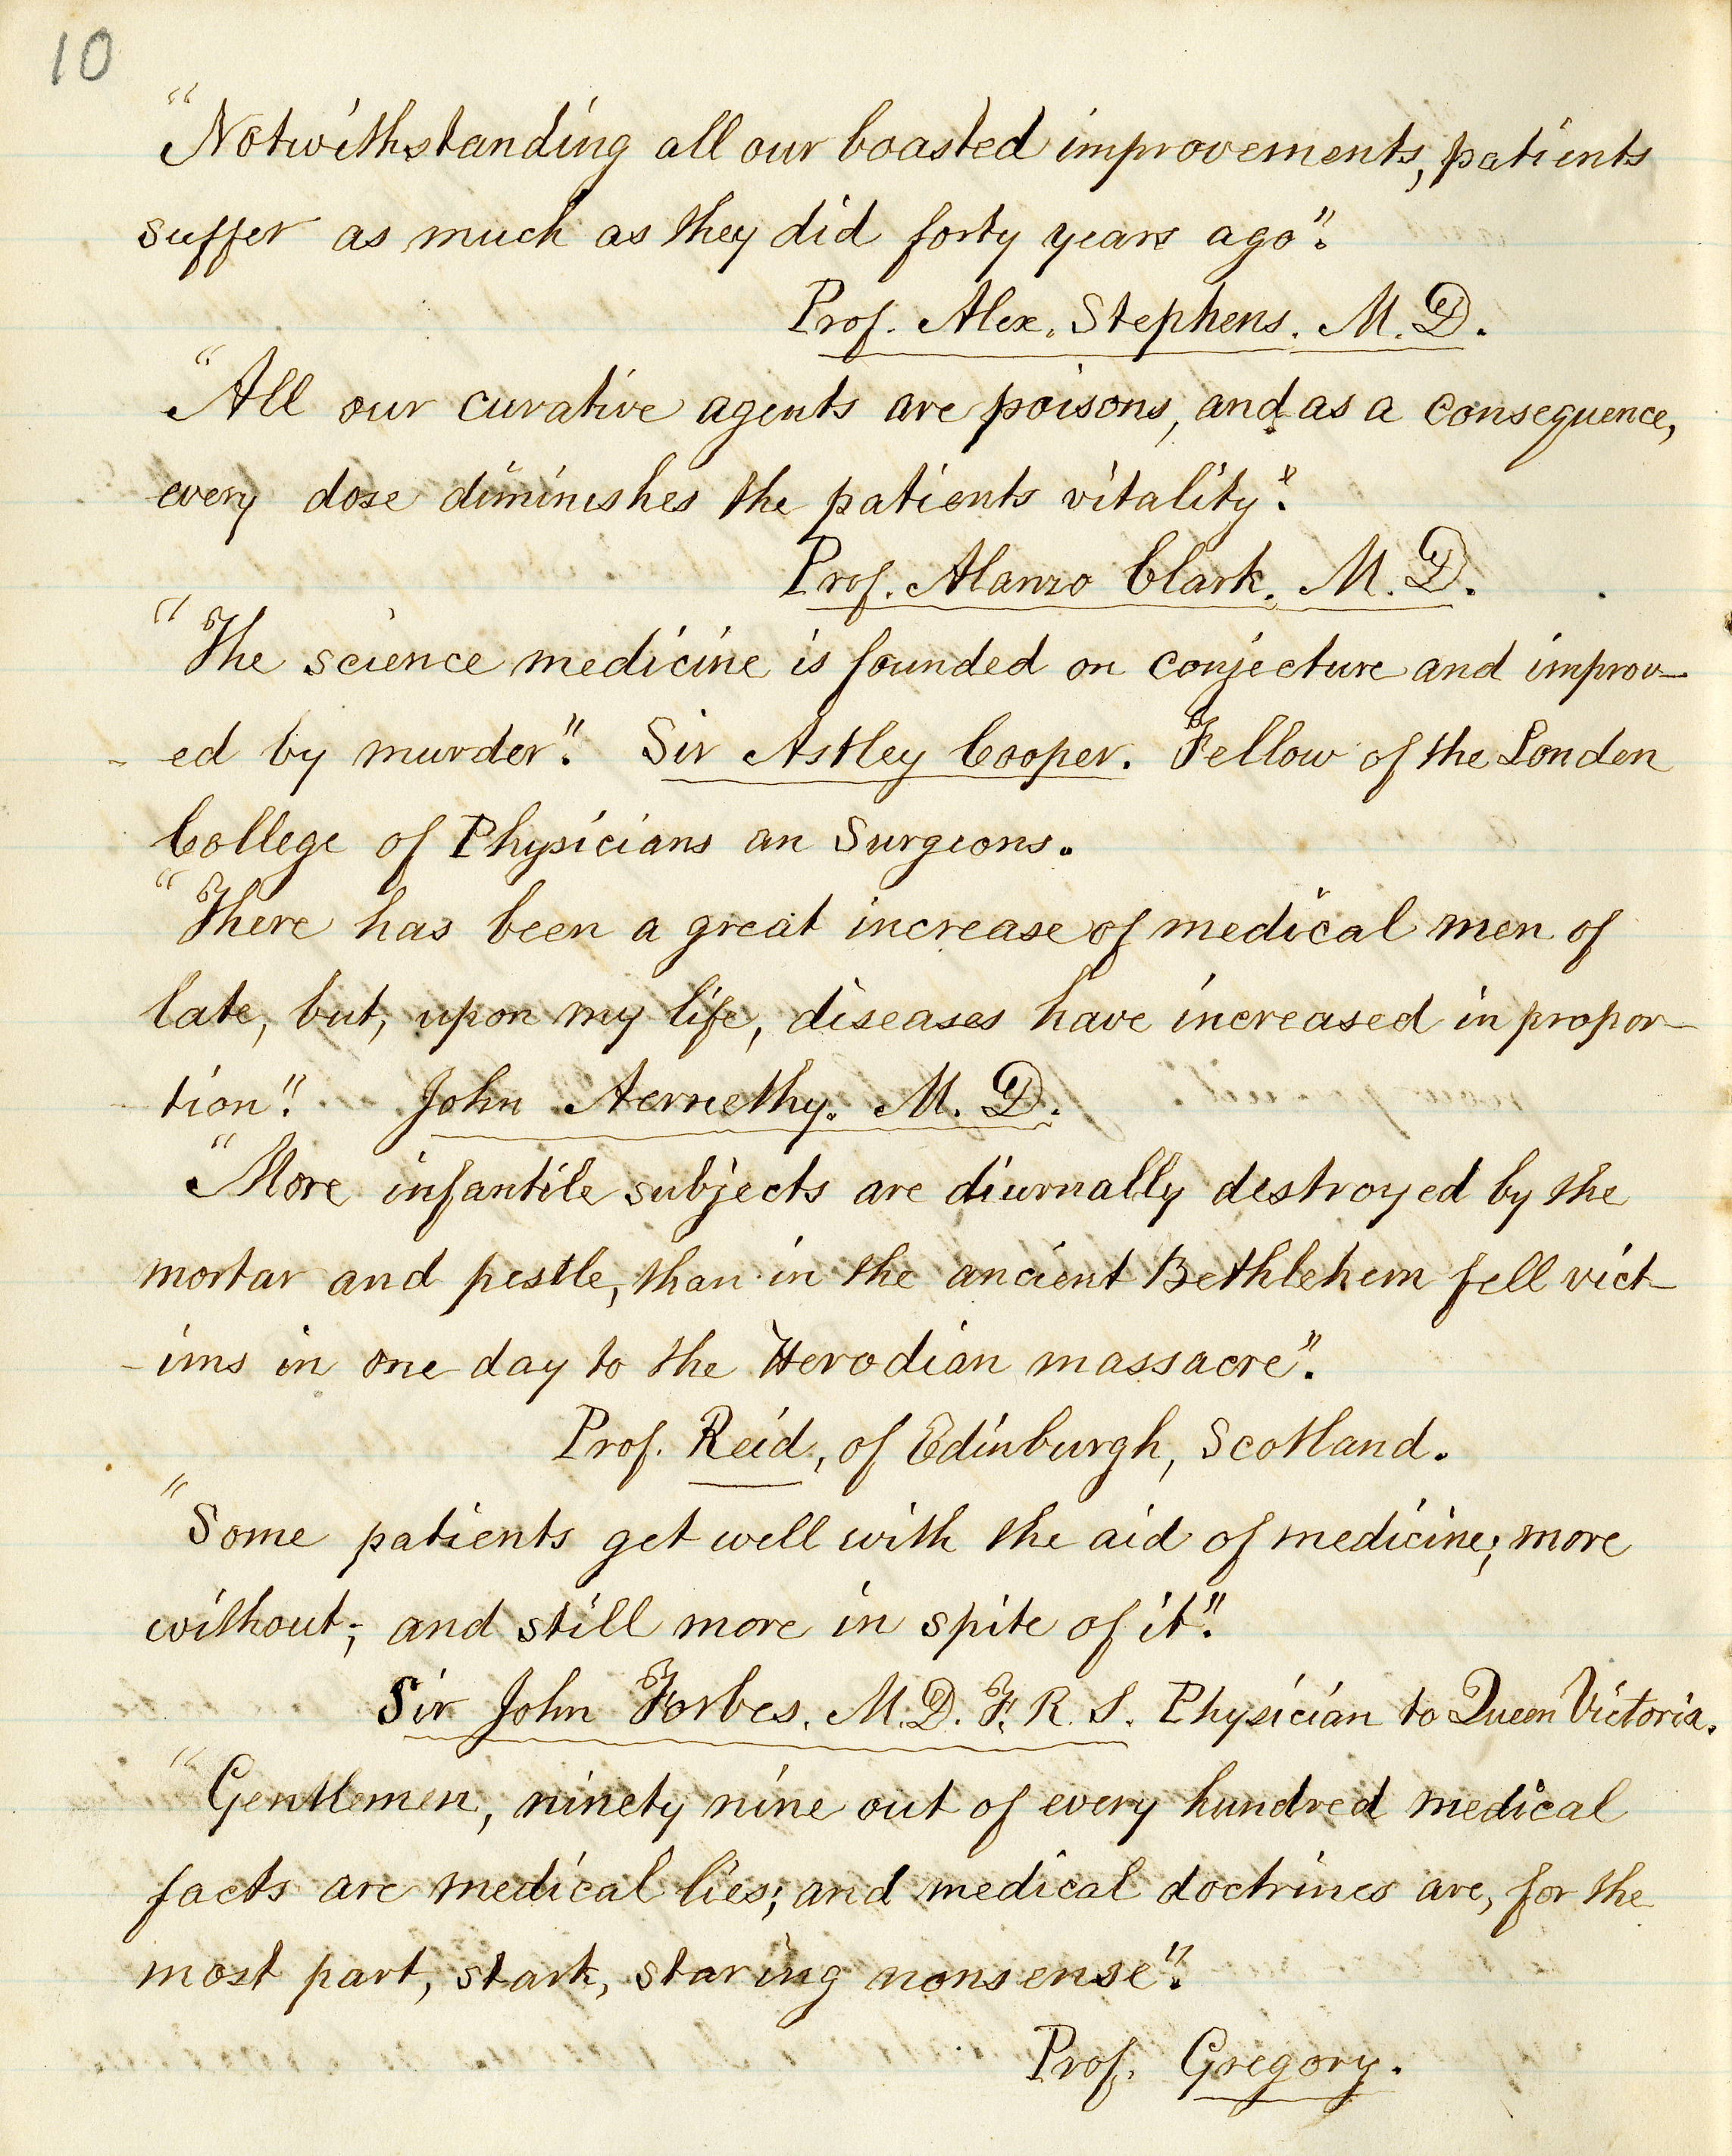 10
"Notwithstanding all our boasted improvements, patients
suffer as much as they did forty years ago".
Prof. Alex. Stephens. M. D.
"All our curative agents are poisons, and as a consequence,
every dose diminishes the patients vitality".
Prof. Alanzo Clark. M. D.
"The science medicine is founded on conjecture and improv-
- ed by murder". Sir Astley Cooper. Fellow of the Londen
College of Physicians an Surgeons.
"There has been a great increase of medical men of
late, but, upon my life, diseases have increased in propor-
- tion". John Aernethy. M. D.
"More infantile subjects are diurnally destroyed by the
mortar and pestle, than in the ancient Bethlehem fell vict-
- ims in one day to the Herodian massacre".
Prof. Reid, of Edinburgh, Scotland.
"Some patients get well with the aid of medicine; more
without; and still more in spite of it".
Sir John Forbes. M. D. F. R. S. Physician to Queen Victoria.
"Gentlemen, ninety nine out of every hundred medical
facts are medical lies; and medical doctrines are, for the
most part, stark, staring nonsense".
Prof. Gregory.